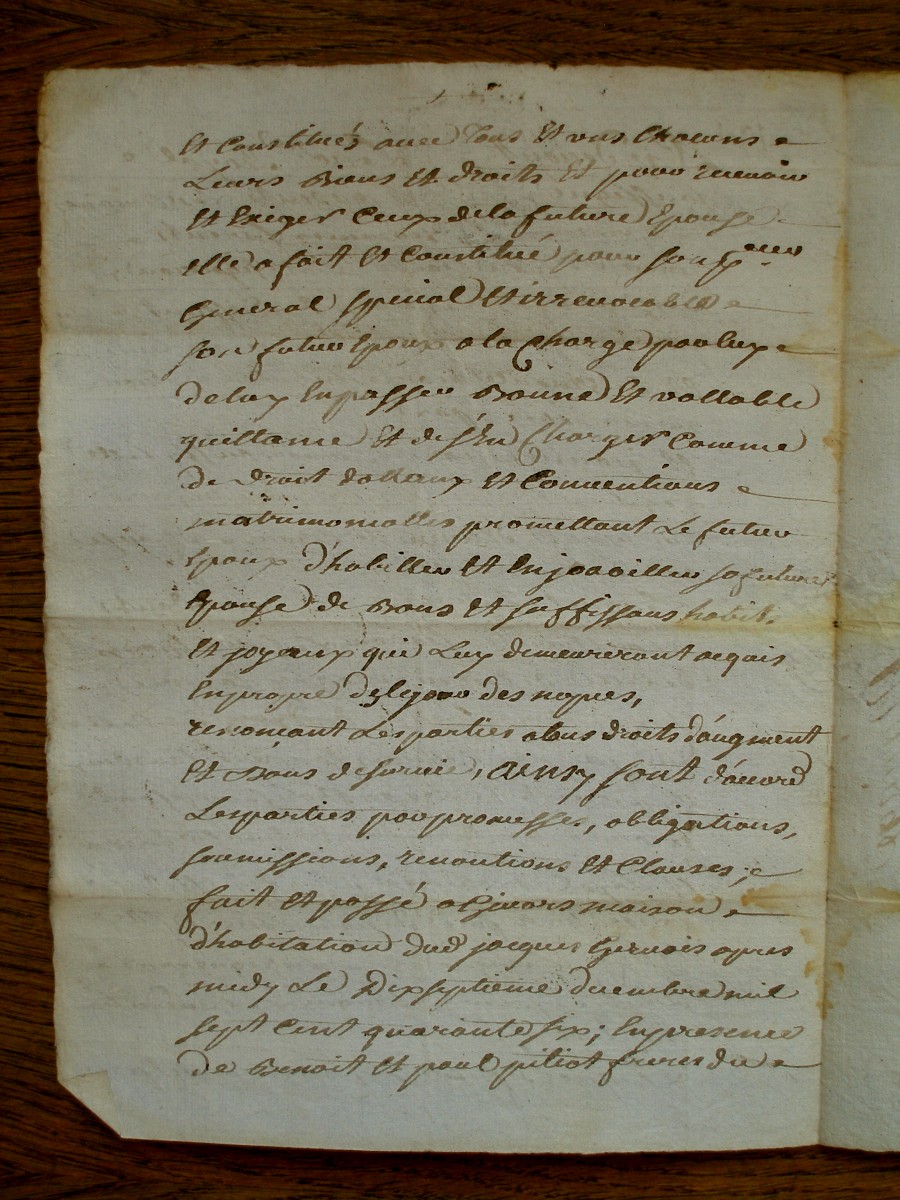 et Constitués avec Tous et uns Chacuns
Leurs Biens et droits et pour recevoir
et Exiger Ceux de la future Epouse
elle a fait et Constitué pour son pr eur
General special et irrevocable
son futur Epoux a la Charge par luy
de luy En passer Bonne et vallable
quittance et de s'En Charger Comme
de droit dottaux et Conventions
matrimonialles promettant Le futur
Epoux d'habiller et Enjoailler sa future
Epouse de Bons et suffissans habit.
et joyeaux qui Luy demeureront acquis
En propre des le jour des nopces,
renonçant Les parties a tous droits d'augment
et Dons de survie, ainsy sont d'accord
Les parties par promesses, obligations,
soumissions, renontions et Clauses;
fait et passé a maison
d'habitation dud jacques Gervais apres
midy Le Dixseptieme decembre mil
sept Cent quarante six; En presence
de Benoit et paul pitiot freres du